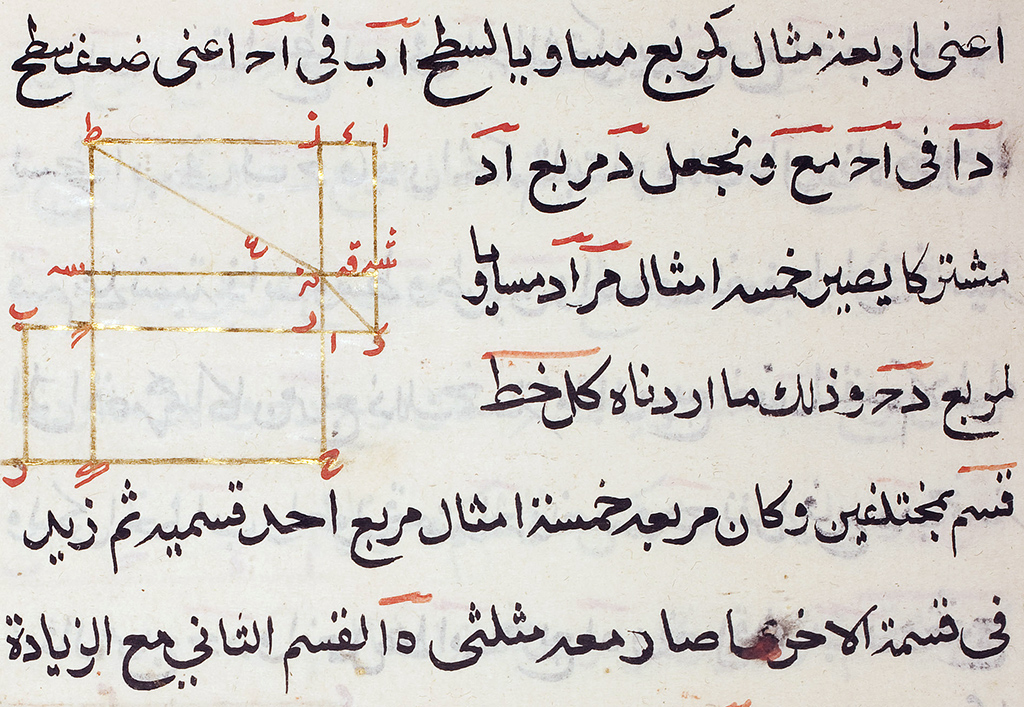 اعنى اربعة مثال لمربع مساويا لسطح اب فى اح اعنى ضعف سطح
دا فى اح مع ونجعل د مربع اد
مشتركا يصير خمسه امثال مر اد مساويا
لمربع دح وذلك ما اردناه كل خط
قسم بمختلفين وكان مربعه خمسة امثال مربع احد قسميه ثم زيد
فى قسمة الاخر صار معه مثلثى ه القسم الثانى مع الزيادة
ط ز ء ا
ع
سه نه قه شه
ب ر ا د
ح